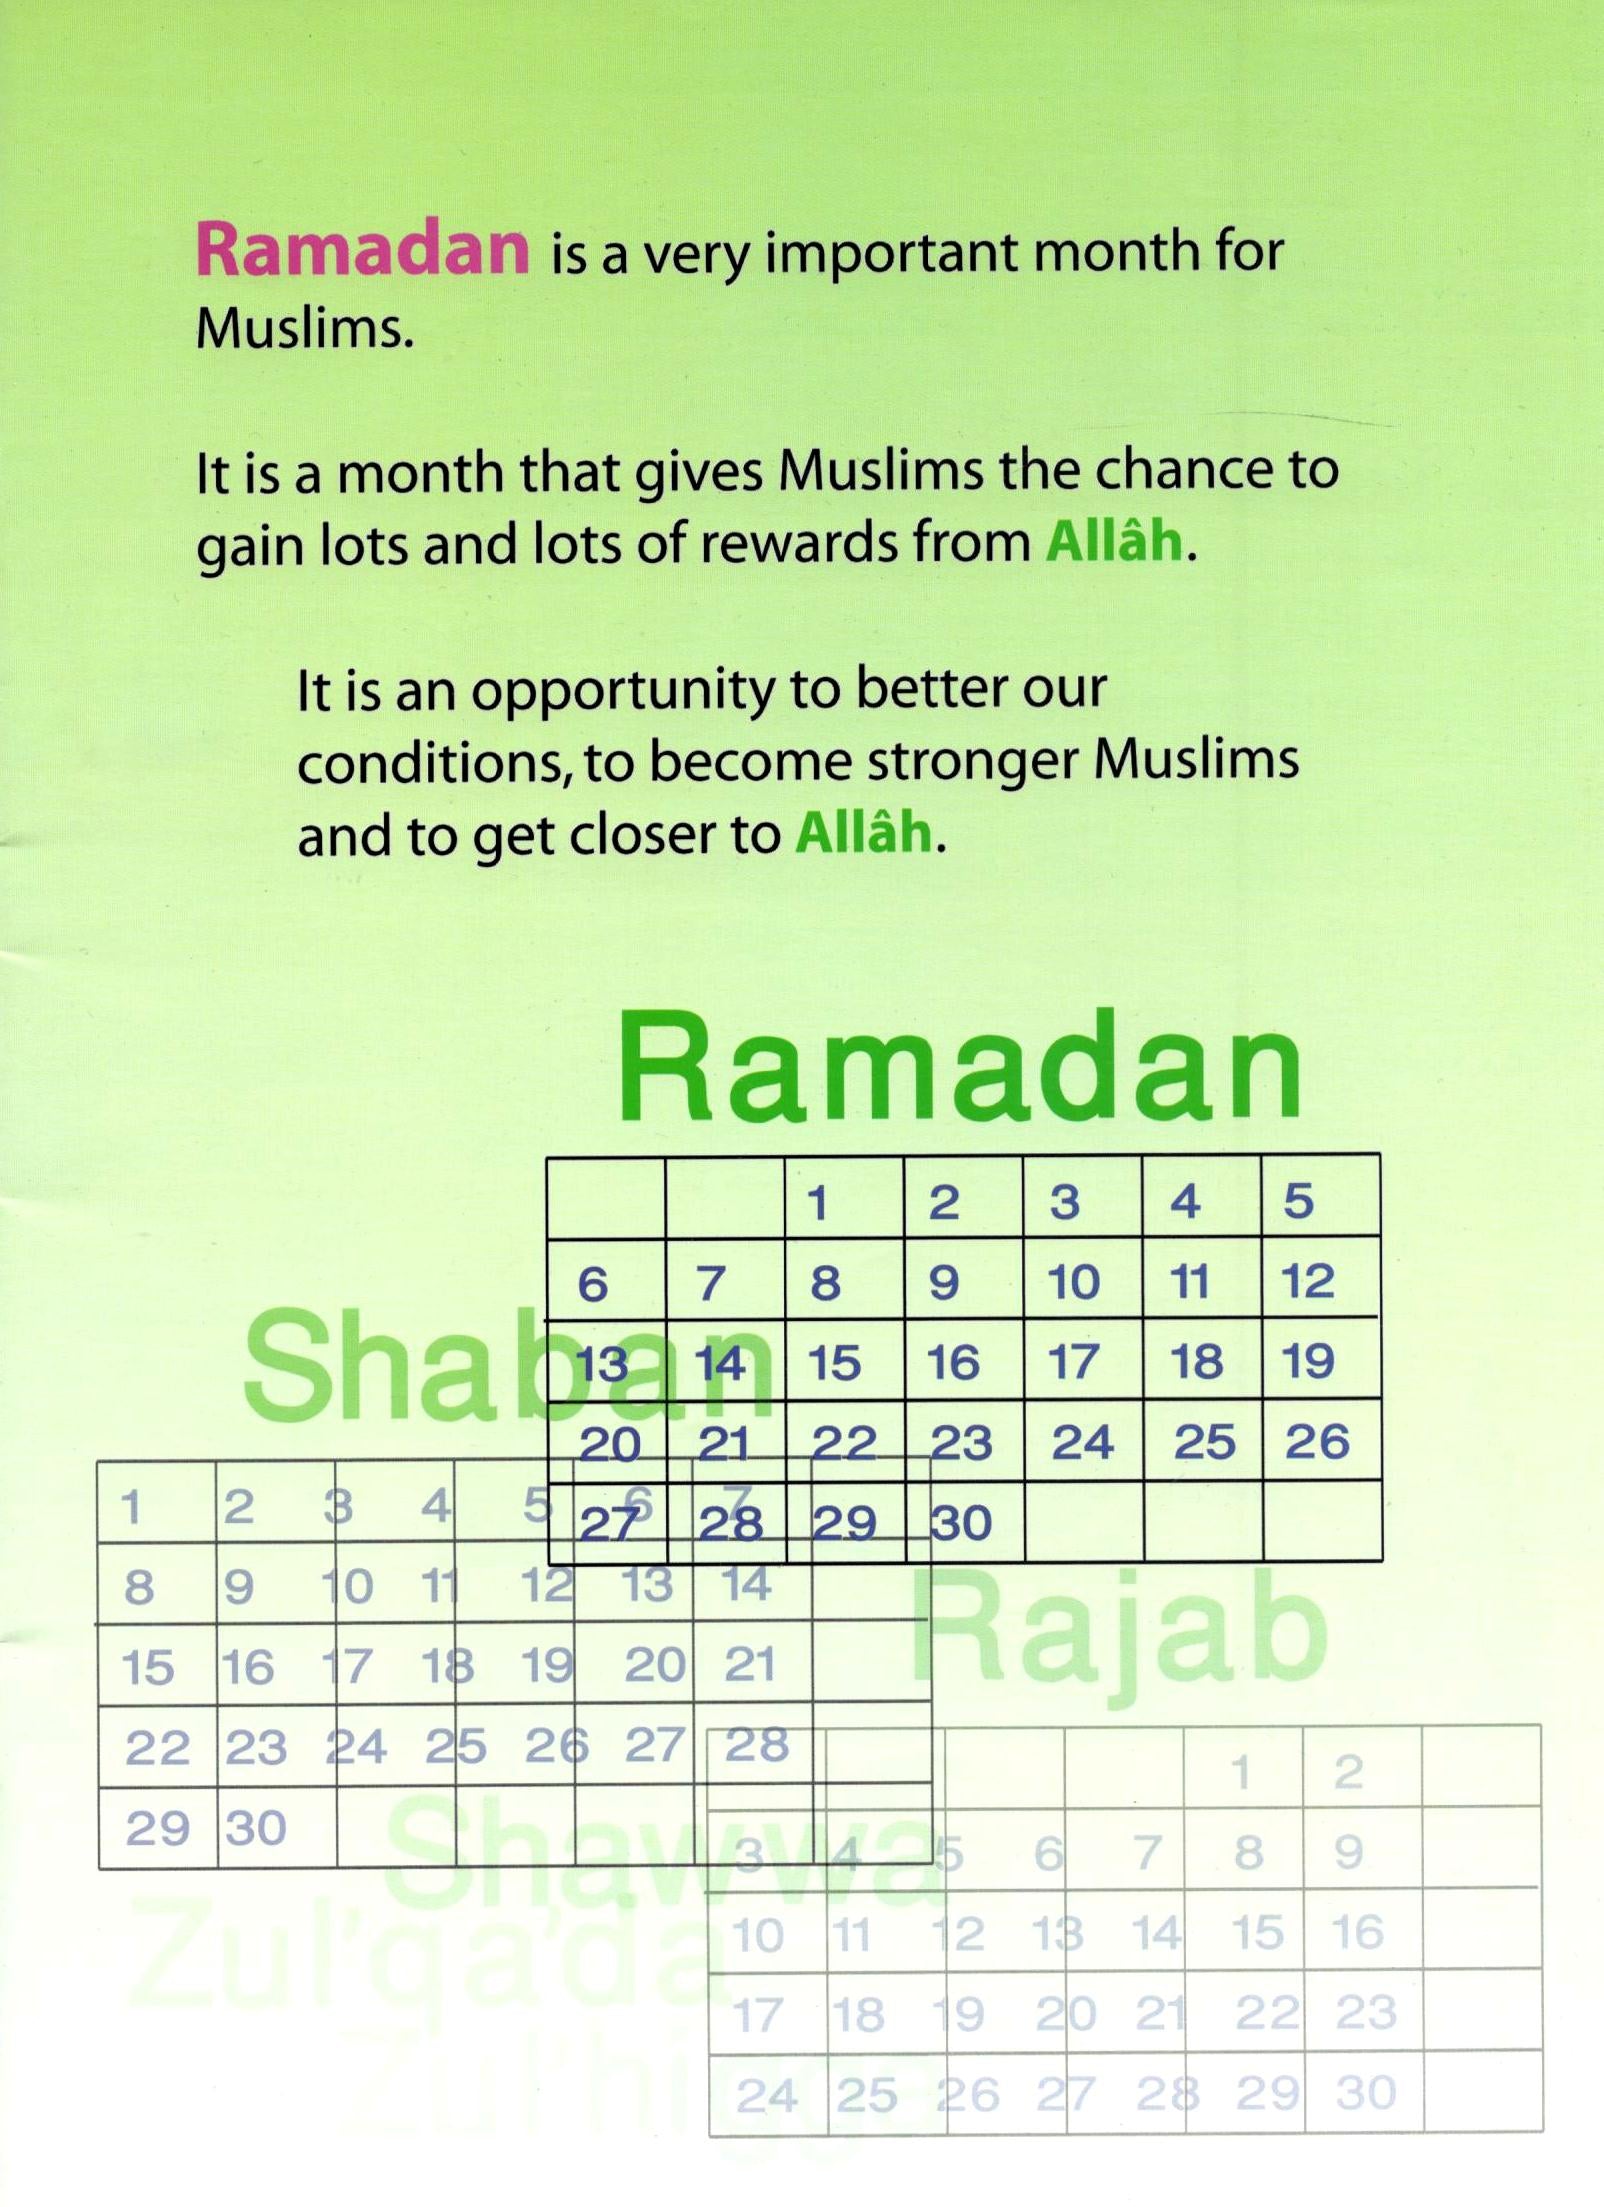 Ramadan is a very important month for
Muslims.
It is a month that gives Muslims the chance to
gain lots and lots of rewards from Allâh.
It is an opportunity to better our
conditions, to become stronger Muslims
and to get closer to Allâh.
Ramadan
1 2 3 4 5
6 7 8 9 10 11 12
13 14 15 16 17 18 19
20 21 22 23 24 25 26
27 28 29 30
Shaban
1 2 3 4 5 6 7
8 9 10 11 12 13 14
15 16 17 18 19 20 21
22 23 24 25 26 27 28
29 30
Rajab
1 2
3 4 5 6 7 8 9
10 11 12 13 14 15 16
17 18 19 20 21 22 23
24 25 26 27 28 29 30
Shawwa
Zul’qa’da